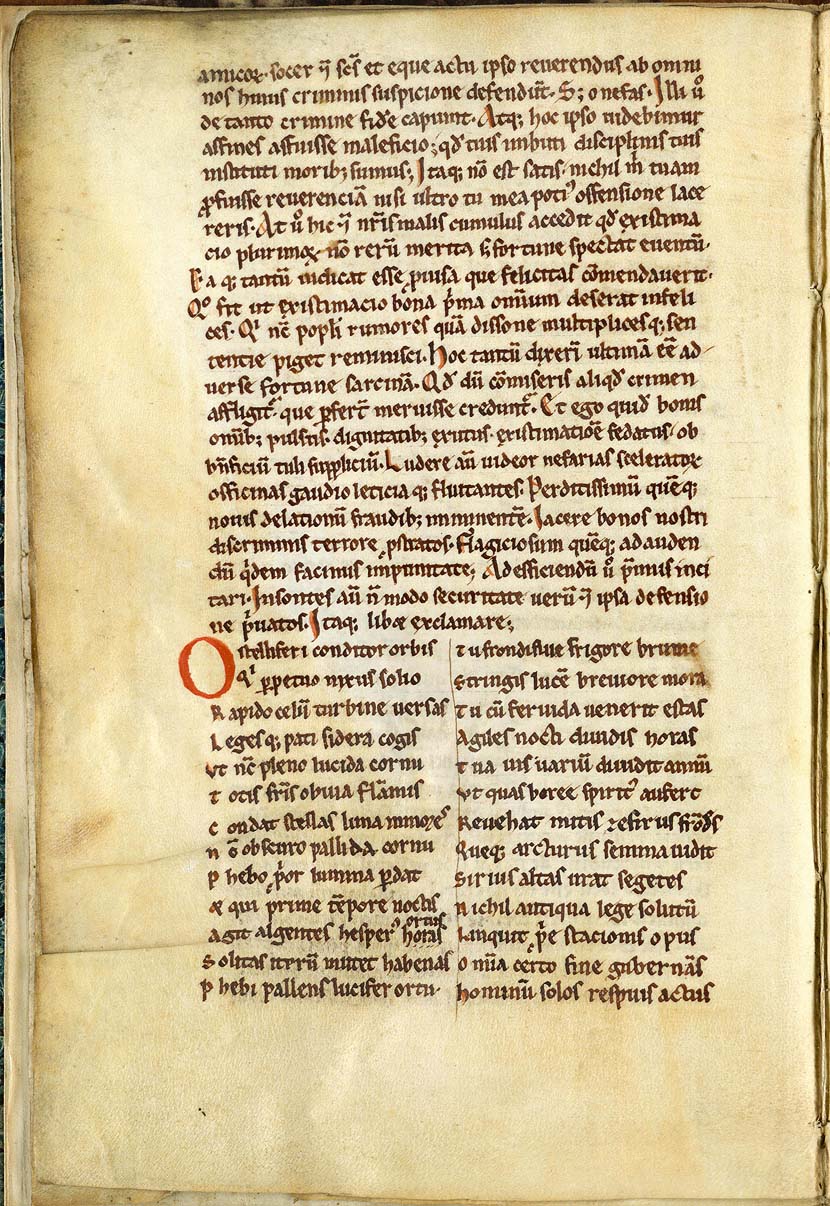 amicoꝝ. socer q̄ sc̄s et eque actu ipso reuerendus ab omni
nos huius criminis suspicione defendūt. S; o nefas. Illi ů
de tanto crimine fidē capiunt. Atq; hoc ipso uidebimur
affines affuisse maleficio; qđ tuis imbuti disciplinis tuis
instituti morib; sumus; Itaq; nō est satis. nichil m̄ tuam
ꝓfuisse reuerenciā nisi ultro tu mea poti᾽ offensione lace
reris. At ů hic q̄ nr̄is malis cumulus accedit qđ existima
cio plurimoꝝ. nō rerū merita s; fortune spectat euentū.
Ea q; tantū iudicat esse p̱uisa que felicitas cōmendauerit.
Qo fit ut existimacio bona p̄ma omnium deserat infeli
ces. Qi nc̄ popl̄i rumores quā dissone multiplicesq; sen
tentie piget reminisci. hoc tantū dixeri͂ ultimā eē̄ ad
uerse fortune sarcinā. Qđ dū cōmiseris aliqđ crimen
affligit᷑. que ꝑfer̄t meruisse credunt᷑. Et ego quid͛ bonis
omīb; pulsus. dignitatib; exutus. existimatiōe fedatus. ob
bn̄ficiū tuli suppliciū. Ludere aū uideor nefarias sceleratoꝝ
officinas gaudio leticia q; fluitantes. Perditissimū quēq;
nouis delationū fraudib; imminentē. Iacere bonos nostri
discriminis terrore p̱stratos. flagiciosum quēq; ad auden
dū q̇dem facinus impunitate; Ad efficiendū ů p̄mus inci
tari. Insontes aū n̄ modo securitate uerū q̄ ipsa defensio
ne p̄uatos. Itaq; libꝫ exclamare;
O stelliferi conditor orbis
Qi ꝑpetuo nixus solio
Rapido celū turbine uersas
Legesq; pati sidera cogis
Vt nc̄ pleno lucida cornu
totis fr̄is obuia flāmis
condat stellas luna minores
nc̄ obscuro pallida cornu
phebo p̄or lumina ꝑdat
& qui p̄me tēpore noctis
agit algentes hesper᾽ horas ortus
Solitas iterū mutet habenas
phebi pallens lucifer ortu.
tu frondiflue frigore brume
Stringis lucē breuiore mora
tu cū feruida uenerit estas
Agiles nocti diuidis horas
tua uis uariū diuidit annū
Vt quas boree spirit᾽ aufert
Reuehat mitis zefirus frōdes
Queq; arcturus semina uidit
Sirius altas urat segetes
nichil antiqua lege solutū
Linquit p̱p̄e stacionis opus
omīa certo fine gubernās
hominū solos respuis actus